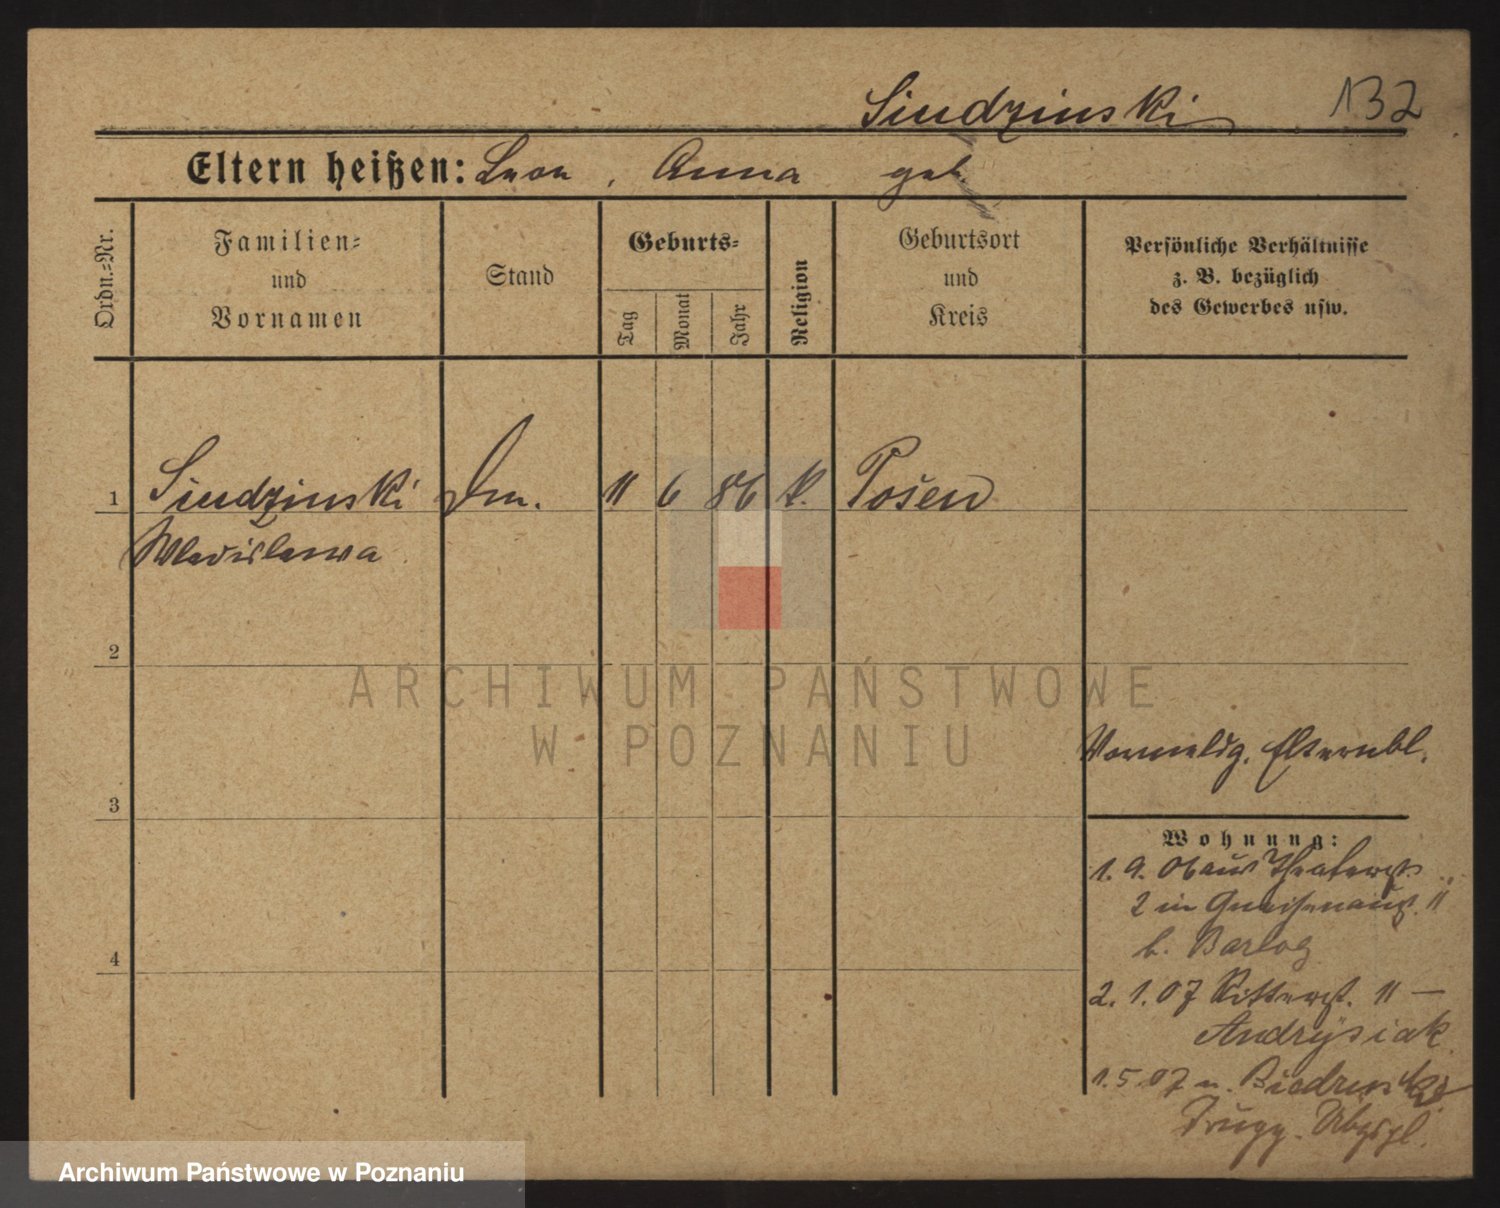 Siudzinski 132
Eltern heißen: Leon, Anna geb.
Ordn.=Nr.
Familien=
und
Vornamen
Stand
Geburts=
Tag
Monat
Jahr
Religion
Geburtsort
und
Kreis
Persönliche Verhältnisse
z. B. bezüglich
des Gewerbes usw.
1 Siudzinski 11 6 86 k. Posen
Wladislawa
2
ARCHIWUM PAŃSTWOWE
W POZNANIU
3
Elternbl.
Wohnung:
1. 9. 06 aus Theaterst.
2 in Gneisenaust. 11
b. Barlog
4
2. 1. 07 Ritterst. 11 —
Andrysiak
1. 5 07 n.
Archiwum Państwowe w Poznaniu